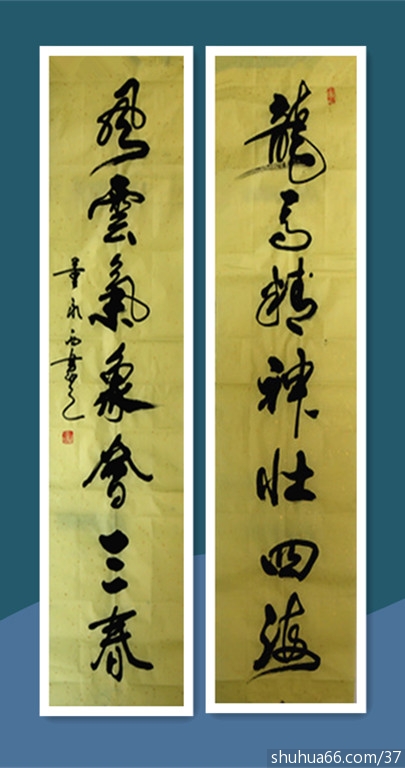 龍馬精神壮四海
風雲氣象會三春
shuhua66.com/37